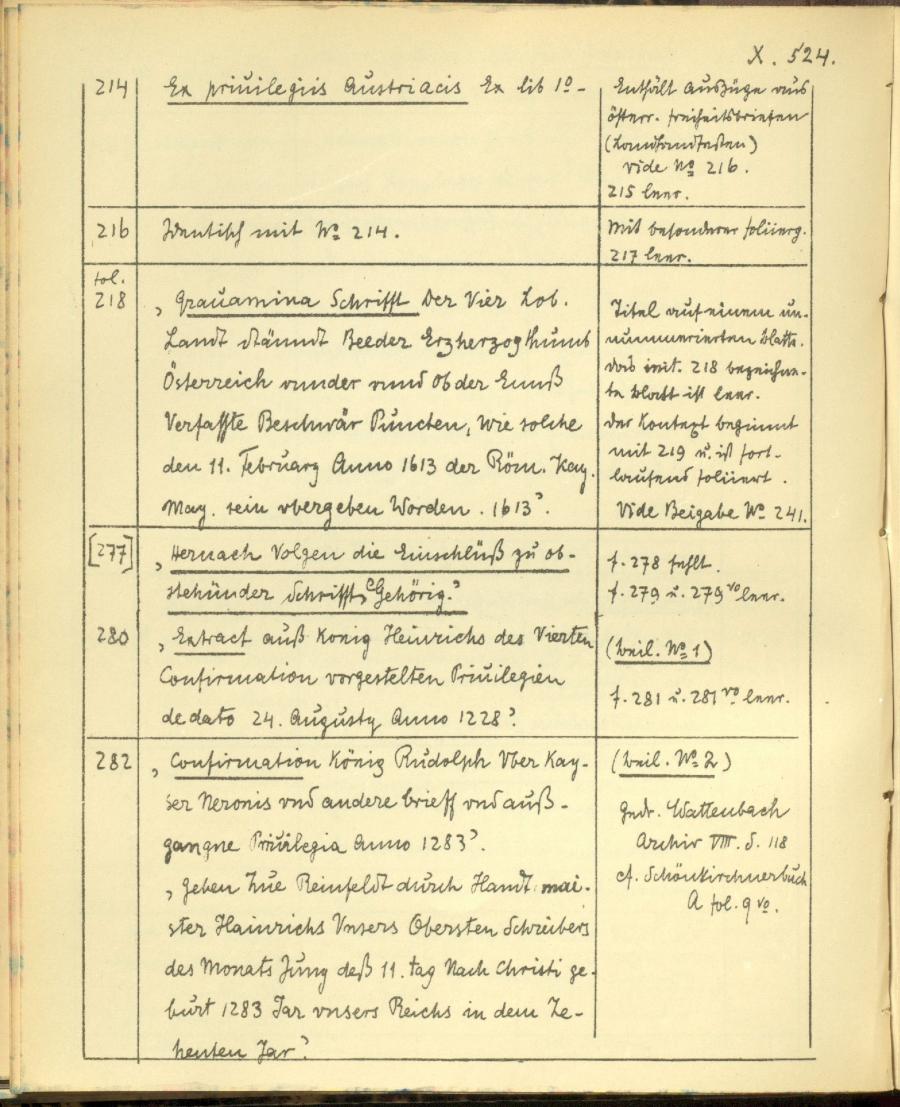 X. 524.
214
Ex priuilegiis Austriacis Ex lib 1o -
Enthält Auszüge aus
österr. Freiheitsbriefen
(Landhandfesten)
vide No 216.
215 leer.
216
Identisch mit No 214.
Mit besonderer foliierg.
217 leer.
fol.
218
„Grauamina Schrifft Der Vier Lob.
Landt Stänndt Beeder Erzherzogthumb
Österreich vunder vnnd Ob der Ennß
Verfasste Beschwär Puncten, wie solche
den 11. February Anno 1613 der Röm. Kay.
May. sein vbergeben Worden. 1613".
Titel auf einem un-
nummerierten Blatte.
das mit. 218 bezeichne-
te Blatt ist leer.
der Kontext beginnt
mit 219 u. ist fort-
laufend foliiert.
Vide Beigabe No 241.
[277]
„Hernach Volgen die Einschlüß zu ob-
stehünder Schrifft Gehörig."
f. 278 fehlt.
f. 279 u. 279 vo leer.
280
„Extract auß Konig Heinrichs des Vierten
Confirmation vorgestelten Priuilegien
de dato 24. Augusty Anno 1228".
(Beil. No 1)
f. 281 u. 281 vo leer.
282
„Confirmation König Rudolph Vber Kay-
ser Neronis vnd andere brieff vnd auß-
gangne Priuilegia Anno 1283".
„Geben Zue Reinfeldt durch Handt mai-
ster Hainrichs Vnsers Obersten Schreibers
des Monats Juny deß 11. tag Nach Christi ge-
burt 1283 Jar vnsers Reichs in dem Ze-
henten Jar"
(Beil. No 2)
Gedr. Wattenbach
Archiv VIII. S. 118
cf. Schönkirchnerbuch
A fol. 9 vo.